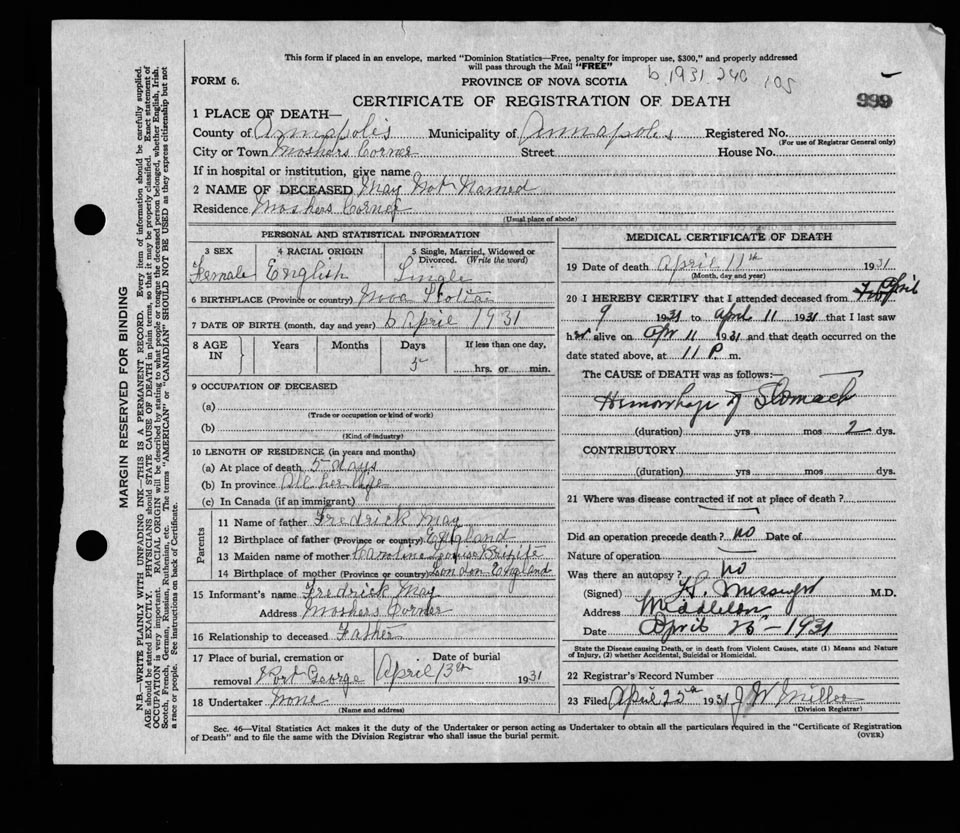 This form if placed in an envelope, marked "Dominion Statistics—Free, penalty for improper use, $300," and properly addressed
will pass through the Mail "FREE"
FORM 6.
PROVINCE OF NOVA SCOTIA
b 1931 246 105
CERTIFICATE OF REGISTRATION OF DEATH
999
1 PLACE OF DEATH—
County of Annapolis Municipality of Annapolis Registered No.
(For use of Registrar General only)
City or Town Moshers Corner Street House No.
If in hospital or institution, give name
2 NAME OF DECEASED May Not Named
Residence Moshers Corner
(Usual place of abode)
PERSONAL AND STATISTICAL INFORMATION
3 SEX 4 RACIAL ORIGIN 5 Single, Married, Widowed or Divorced. (Write the word)
Female English Single
6 BIRTHPLACE (Province or country) Nova Scotia
7 DATE OF BIRTH (month, day and year) 6 April 1931
8 AGE IN Years Months Days If less than one day,
5 hrs. or min.
9 OCCUPATION OF DECEASED
(a)
(Trade or occupation or kind of work)
(b)
(Kind of industry)
10 LENGTH OF RESIDENCE (in years and months)
(a) At place of death 5 days
(b) In province All her life
(c) In Canada (if an immigrant)
Parents
11 Name of father Fredrick May
12 Birthplace of father (Province or country) England
13 Maiden name of mother Caroline Louise
14 Birthplace of mother (Province or country) London England
15 Informant's name Fredrick May
Address Moshers Corner
16 Relationship to deceased Father
17 Place of burial, cremation or removal Port George
Date of burial April 13th 1931
18 Undertaker None
(Name and address)
MEDICAL CERTIFICATE OF DEATH
19 Date of death April 11th 1931
(Month, day and year)
20 I HEREBY CERTIFY that I attended deceased from April
9 1931 to April 11 1931 that I last saw
her alive on Apr 11 1931 and that death occurred on the
date stated above, at 11 P. m.
The CAUSE of DEATH was as follows:—
Hemorrhage of Stomach
(duration) yrs mos 2 dys.
CONTRIBUTORY
(duration) yrs mos dys.
21 Where was disease contracted if not at place of death?
Did an operation precede death? no Date of
Nature of operation
Was there an autopsy? no
(Signed) M.D.
Address Middleton
Date April 1931
State the Disease causing Death, or in death from Violent Causes, state (1) Means and Nature
of Injury, (2) whether Accidental, Suicidal or Homicidal.
22 Registrar's Record Number
23 Filed April 25th 1931 J W Miller
(Division Registrar)
Sec. 46—Vital Statistics Act makes it the duty of the Undertaker or person acting as Undertaker to obtain all the particulars required in the "Certificate of Registration
of Death" and to file the same with the Division Registrar who shall issue the burial permit.
(OVER)
MARGIN RESERVED FOR BINDING
N.B.—WRITE PLAINLY WITH UNFADING INK—THIS IS A PERMANENT RECORD. Every item of information should be carefully supplied.
AGE should be stated EXACTLY. PHYSICIANS should STATE CAUSE OF DEATH in plain terms, so that it may be properly classified. Exact statement of
OCCUPATION is very important. RACIAL ORIGIN will be described by stating to what people or tongue the deceased person belonged, whether English, Irish,
Scotch, French, German, Russian, Ruthenian, etc. The terms "AMERICAN" or "CANADIAN" SHOULD NOT BE USED as they express citizenship but not
a race or people. See instructions on back of Certificate.